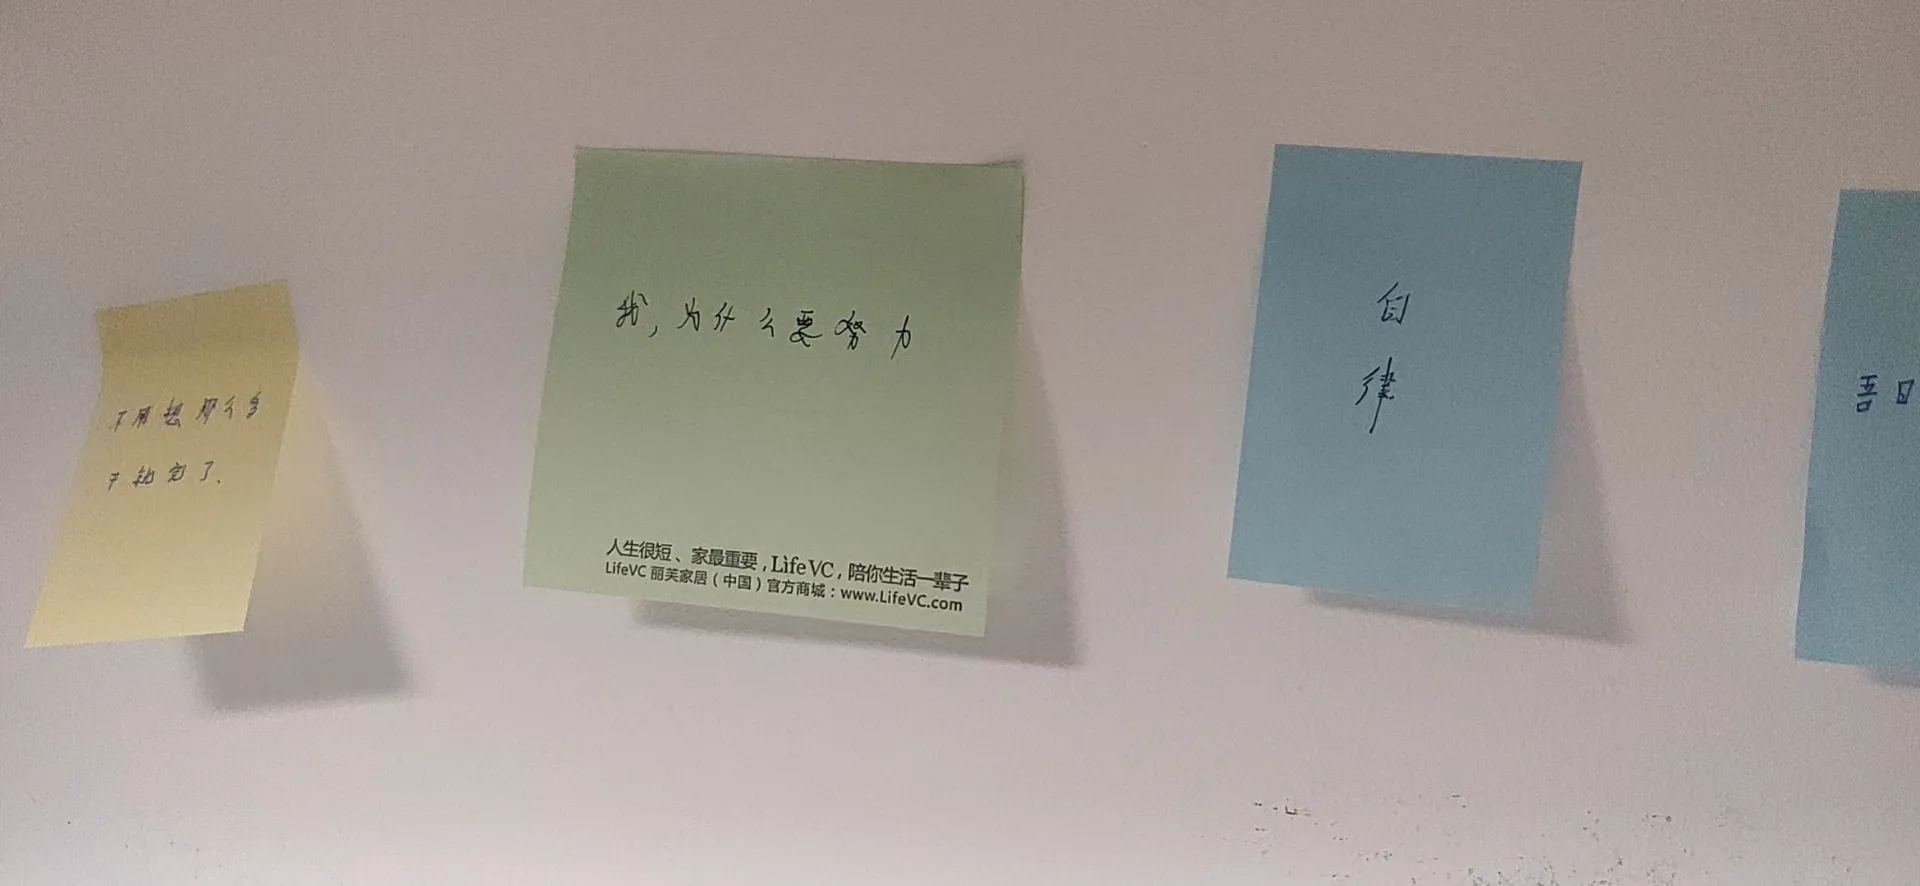 不用想那么多
干就完了.
我,为什么要努力
人生很短、家最重要,LifeVC,陪你生活一辈子
LifeVC 丽芙家居(中国)官方商城:www.LifeVC.com
自
律
吾日